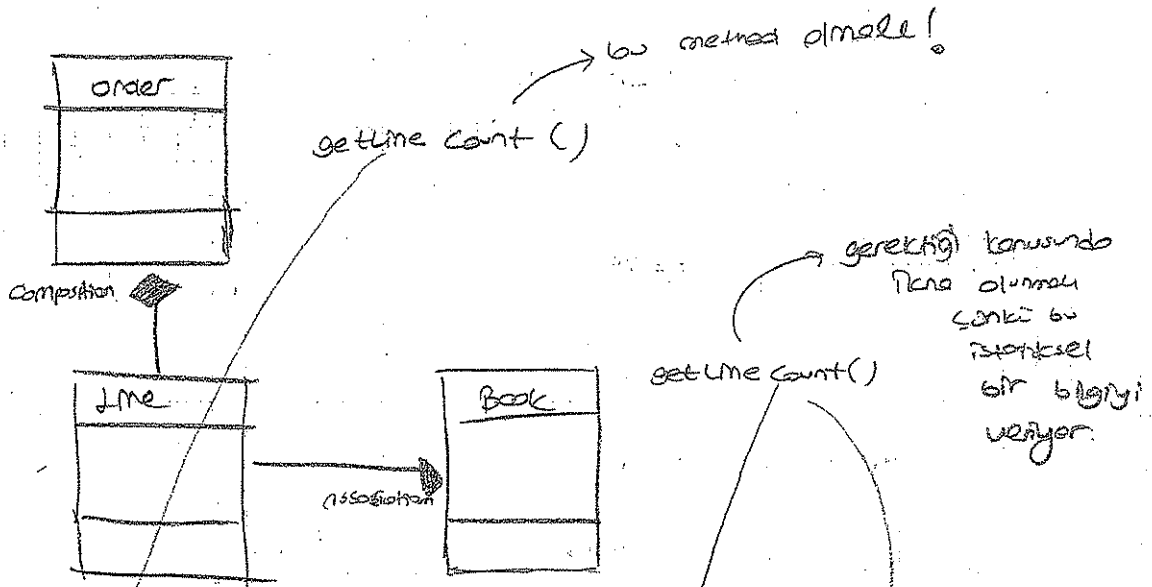 bu method olmalı!
order
getLine count ()
Composition
gerektiği konusunda
ikna olunmalı
çünkü bu
istatiksel
bir bilgiyi
veriyor.
getLine count()
Line
Book
Assosiation